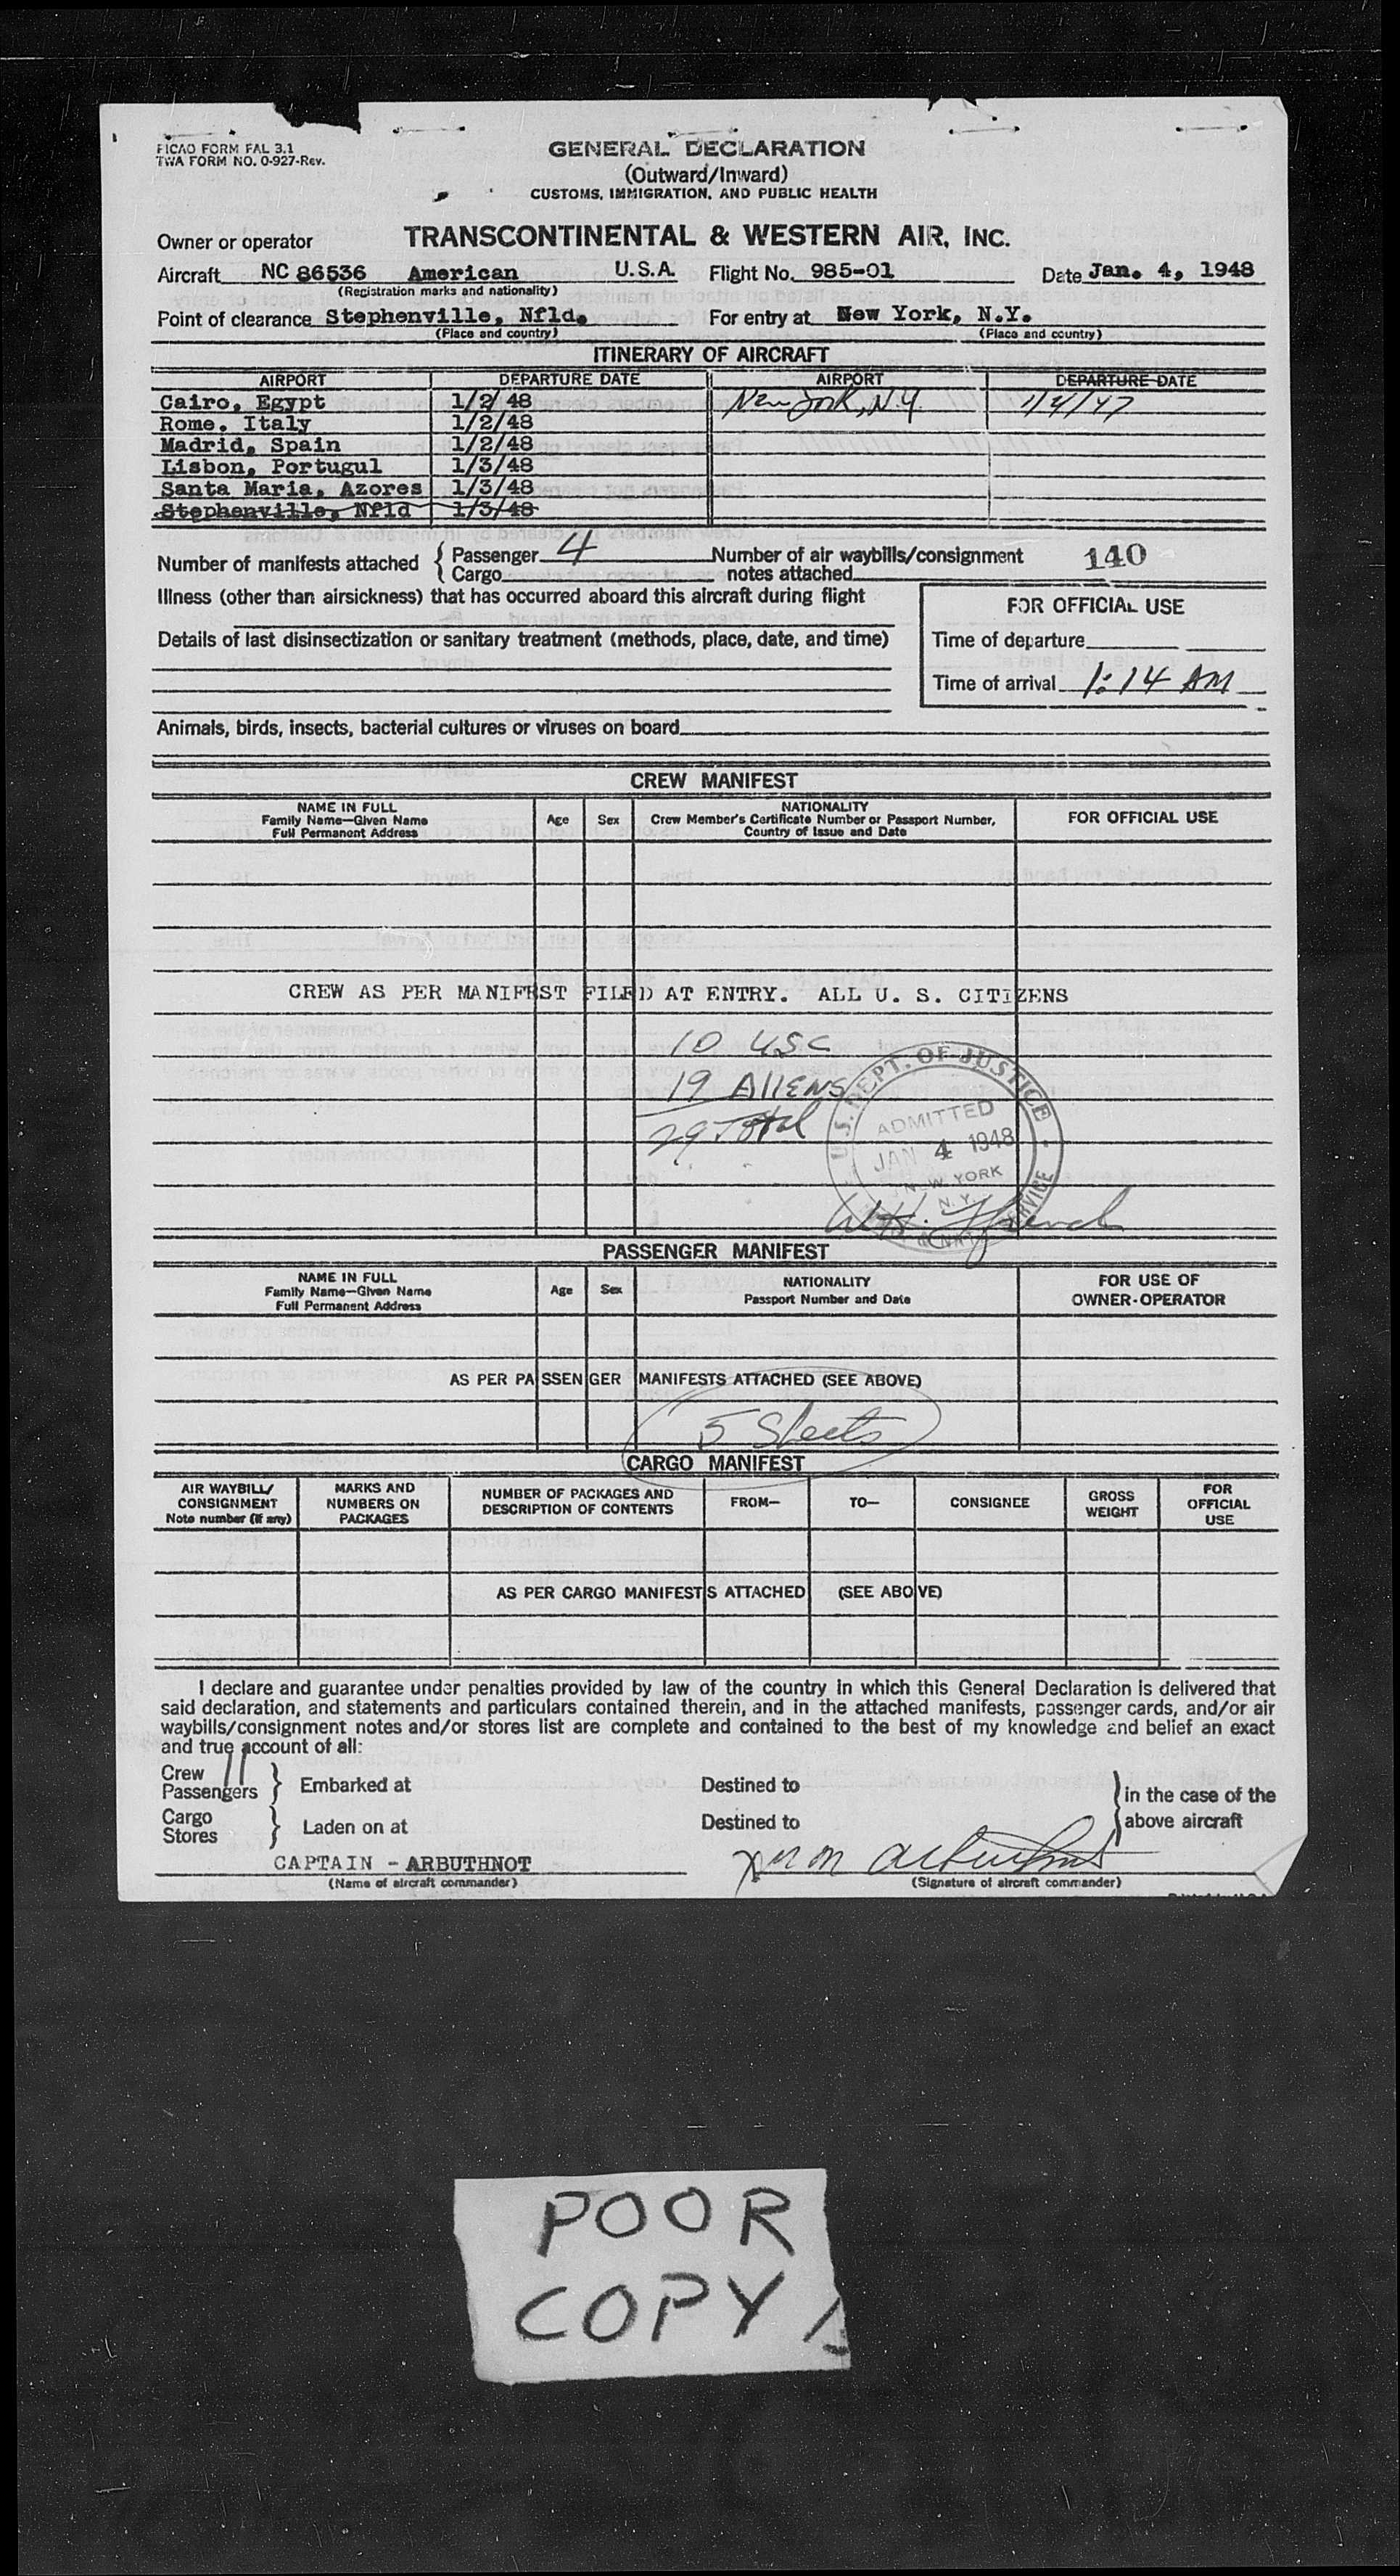 PICAO FORM FAL 3.1
TWA FORM NO. O-927-Rev.
GENERAL DECLARATION
(Outward/Inward)
CUSTOMS, IMMIGRATION, AND PUBLIC HEALTH
Owner or operator TRANSCONTINENTAL & WESTERN AIR, INC.
Aircraft NC 86536 American U.S.A. Flight No. 985-01 Date Jan. 4, 1948
(Registration marks and nationality)
Point of clearance Stephenville, Nfld. For entry at New York, N.Y.
(Place and country) (Place and country)
ITINERARY OF AIRCRAFT
AIRPORT DEPARTURE DATE AIRPORT DEPARTURE DATE
Cairo, Egypt 1/2/48 New York, N.Y. 1/4/47
Rome, Italy 1/2/48
Madrid, Spain 1/2/48
Lisbon, Portugul 1/3/48
Santa Maria, Azores 1/3/48
Stephenville, Nfld 1/3/48
Number of manifests attached { Passenger 4 Number of air waybills/consignment 140
Cargo notes attached
Illness (other than airsickness) that has occurred aboard this aircraft during flight
FOR OFFICIAL USE
Details of last disinsectization or sanitary treatment (methods, place, date, and time)
Time of departure
Time of arrival 1:14 AM
Animals, birds, insects, bacterial cultures or viruses on board
CREW MANIFEST
NAME IN FULL
Family Name—Given Name
Full Permanent Address
Age Sex
NATIONALITY
Crew Member's Certificate Number or Passport Number,
Country of Issue and Date
FOR OFFICIAL USE
CREW AS PER MANIFEST FILED AT ENTRY. ALL U. S. CITIZENS
10 USC
19 Aliens
29 Total
U.S. DEPT. OF JUSTICE
ADMITTED
JAN 4 1948
NEW YORK
N.Y.
SERVICE
PASSENGER MANIFEST
NAME IN FULL
Family Name—Given Name
Full Permanent Address
Age Sex
NATIONALITY
Passport Number and Date
FOR USE OF
OWNER-OPERATOR
AS PER PASSENGER MANIFESTS ATTACHED (SEE ABOVE)
5 Sheets
CARGO MANIFEST
AIR WAYBILL/
CONSIGNMENT
Note number (if any)
MARKS AND
NUMBERS ON
PACKAGES
NUMBER OF PACKAGES AND
DESCRIPTION OF CONTENTS
FROM—
TO—
CONSIGNEE
GROSS
WEIGHT
FOR
OFFICIAL
USE
AS PER CARGO MANIFESTS ATTACHED (SEE ABOVE)
I declare and guarantee under penalties provided by law of the country in which this General Declaration is delivered that
said declaration, and statements and particulars contained therein, and in the attached manifests, passenger cards, and/or air
waybills/consignment notes and/or stores list are complete and contained to the best of my knowledge and belief an exact
and true account of all:
Crew 11
Passengers } Embarked at Destined to } in the case of the
Cargo
Stores } Laden on at Destined to above aircraft
CAPTAIN - ARBUTHNOT
(Name of aircraft commander) (Signature of aircraft commander)
POOR
COPY